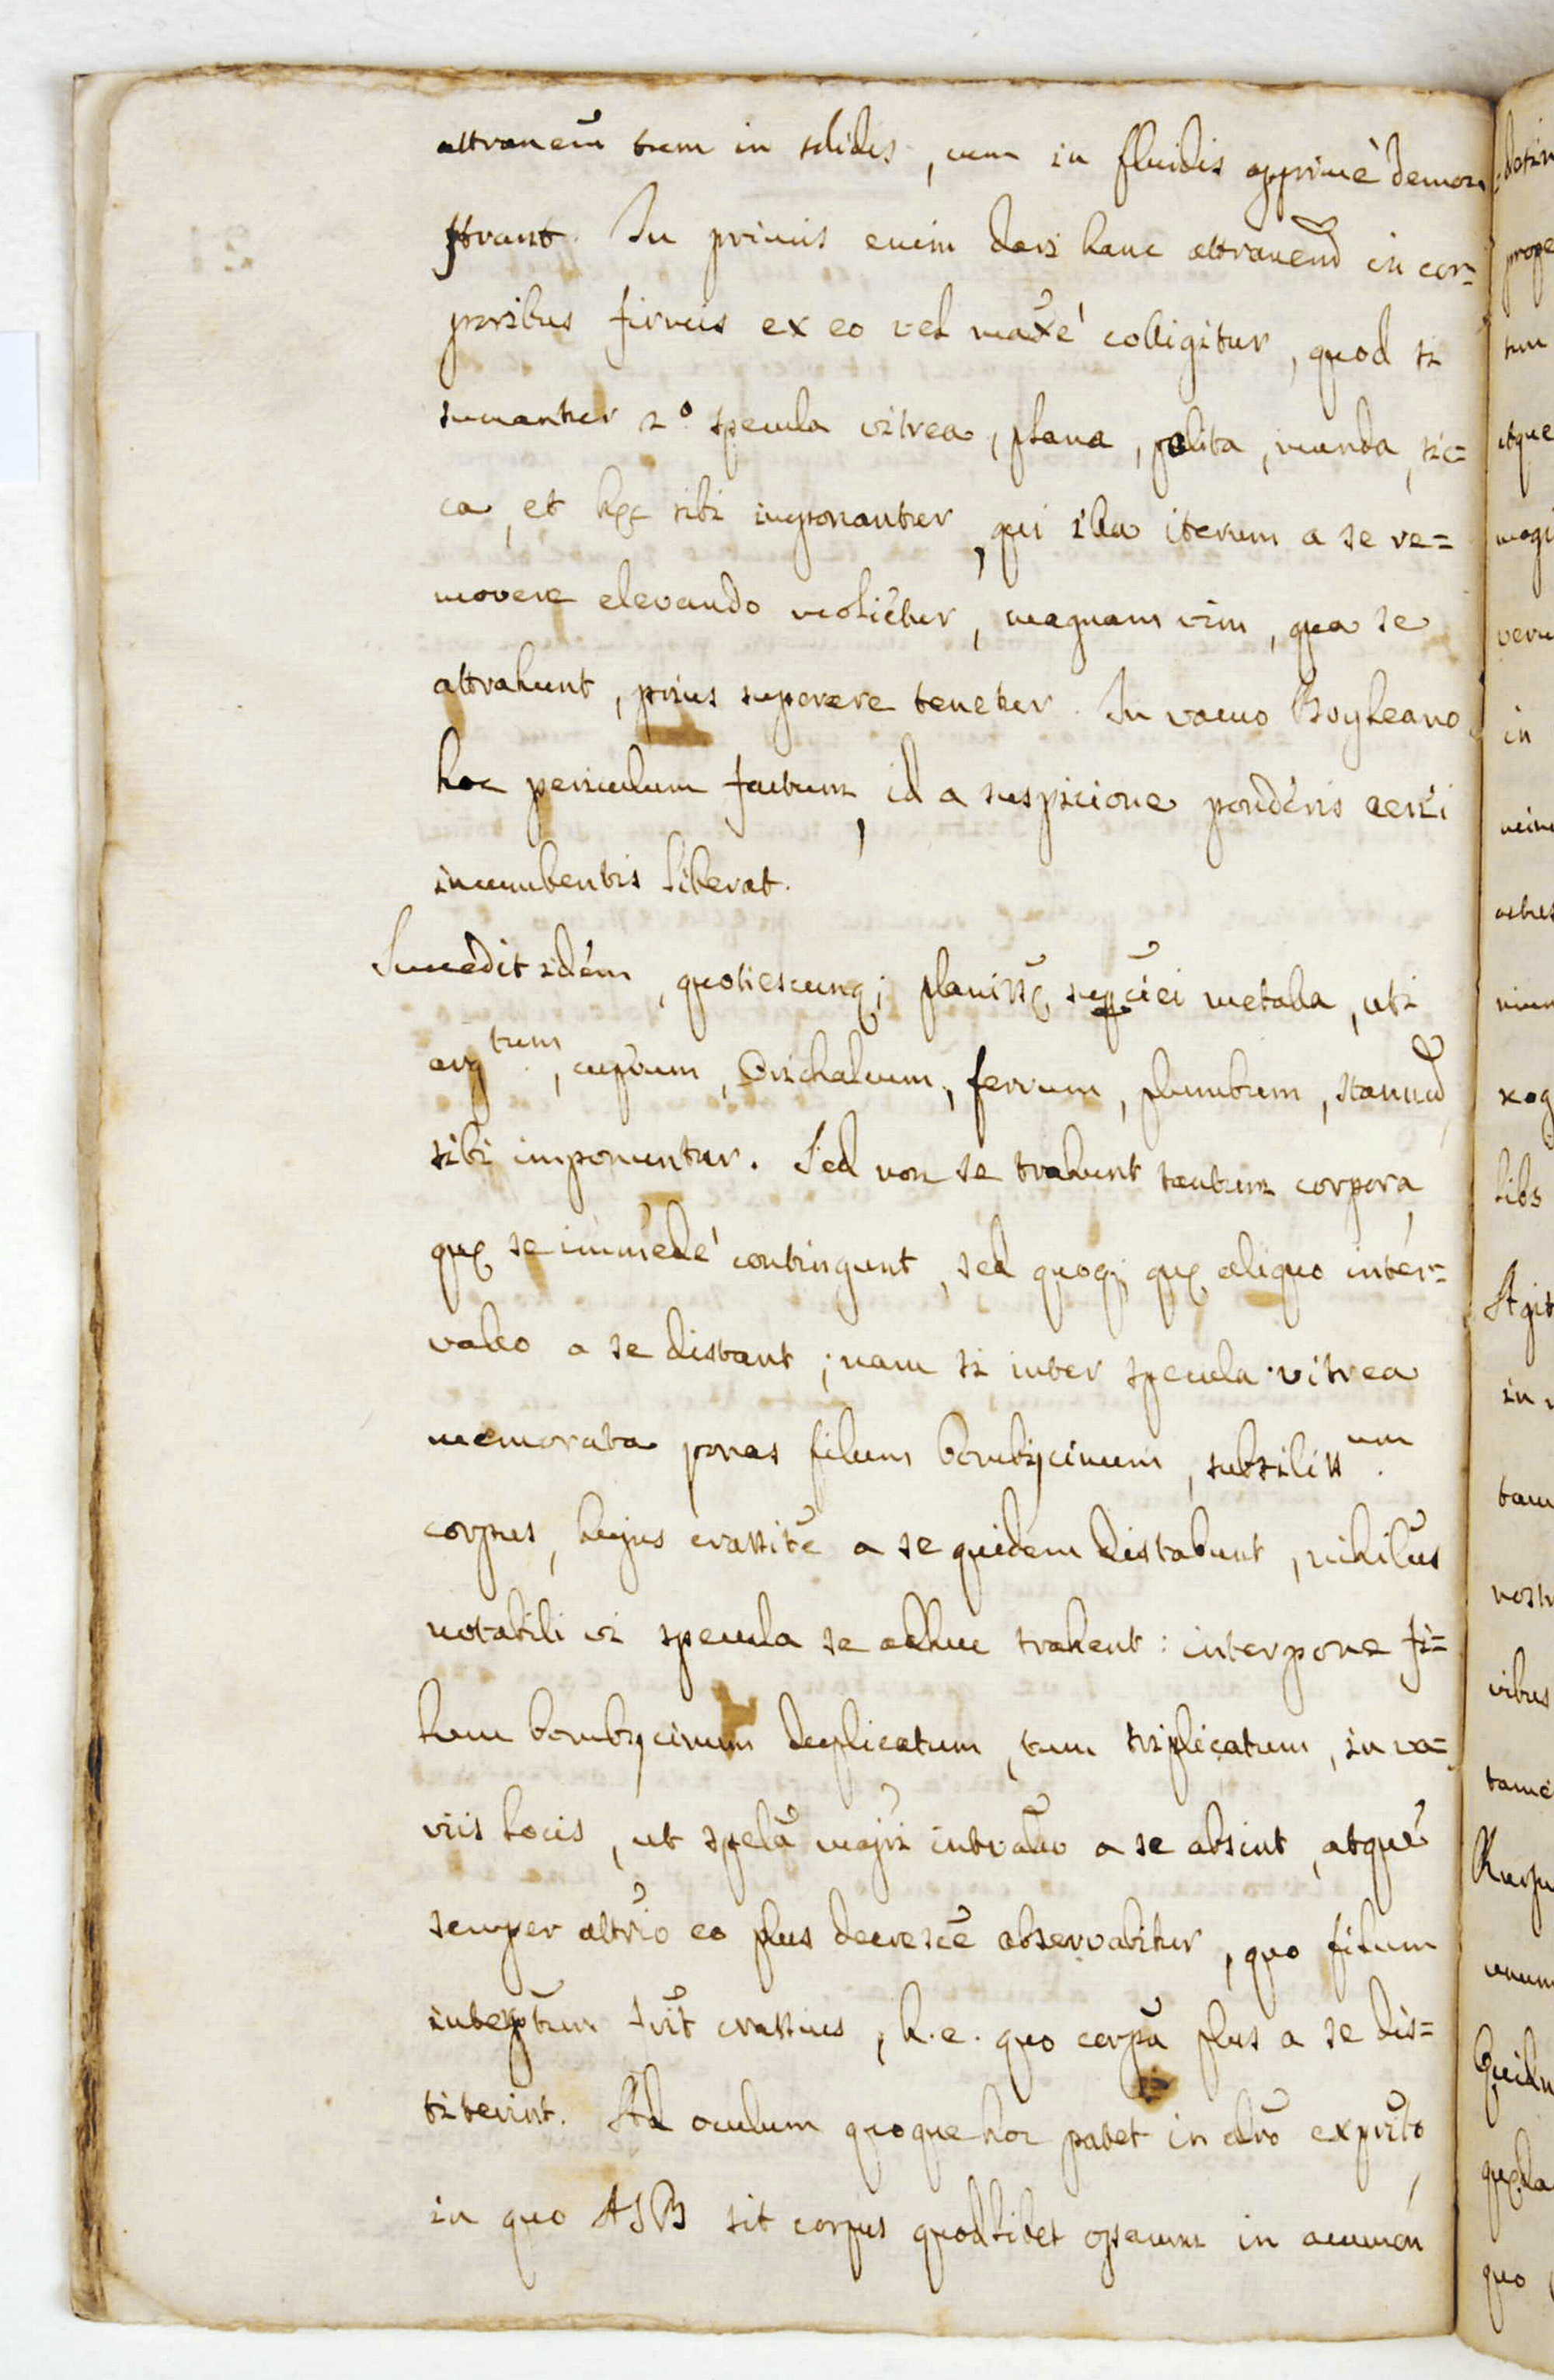 attranem̃ tum in solidis, cum in fluidis apprimè demon
strant. In primis enim dari hanc attranem̃ in cor=
poribus firmis ex eo vel max̃é colligitur, quod si
sumantur 2º specula vitrea, plana, polita, munda, sic=
ca, et hęc sibi imponantur, qui illa iterum a se re=
movere elevando moliẽtur, magnam vim, qua se
attrahunt, prius superare tenetur. In vacuo Boyleano
hoc periculum factum, id a suspicione ponderis aeris
incumbentis liberat.
Succedit idem, quotiescunq; planiss̃ę supc̃iei metalla, uti
arg^tum, cuprum, Orichalcum, ferrum, plumbum, stannum̃
sibi imponuntur. Sed non se trahunt tantum corpora,
quę se im̃ed̃é contingunt, sed quoq; quę aliquo inter=
vallo a se distant; nam si inter specula vitrea
memorata ponas filum bombycinum, subtiliss^mum
corpus, hujus crassitẽ a se quidem distabunt, nihilũs
notabili vi specula se adhuc trahent: interpone fi=
lum bombycinum duplicatum, tum triplicatum, in va=
riis locis, ut spelã majri intrallo a se absint, atque
semper attrio eo plus decrescẽ observabitur, quo filum
interptum fuĩt crassius, h.e. quo corpã plus a se dis=
titerint. Ad oculum quoque hoc patet in alrõ expritõ,
in quo ASB sit corpus quodlibet opacum in acumen